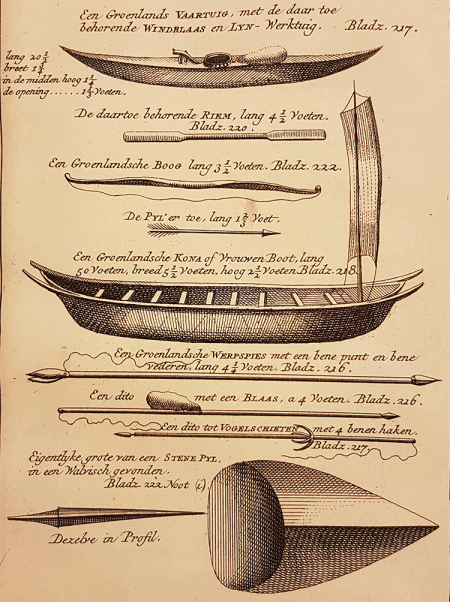 Een Groenlands VAARTUIG, met de daar toe
behorende WINDBLAAS en LYN-Werktuig. Bladz. 217.
lang 20 1/2
breet 1 3/4
in de midden hoog 1 1/4
de opening...... 1 1/2 Voeten.
De daartoe behorende RIEM, lang 4 1/2 Voeten.
Bladz. 220.
Een Groenlandsche BOOG lang 3 1/2 Voeten. Bladz. 222.
De PYL er toe, lang 1 2/3 Voet.
Een Groenlandsche KONA of Vrouwen Boot, lang
50 Voeten, breed 5 1/2 Voeten, hoog 2 1/2 Voeten Bladz. 218.
Een Groenlandsche WERPSPIES met een bene punt en bene
vederen, lang 4 1/4 Voeten. Bladz. 216.
Een dito met een BLAAS, a 4 Voeten. Bladz. 216.
Een dito tot VOGELSCHIETEN met 4 benen haken.
Bladz. 217
Eigentlyke grote van een STENE PYL,
in een Walvisch gevonden.
Bladz. 222 Noot (i).
Dezelve in Profil.